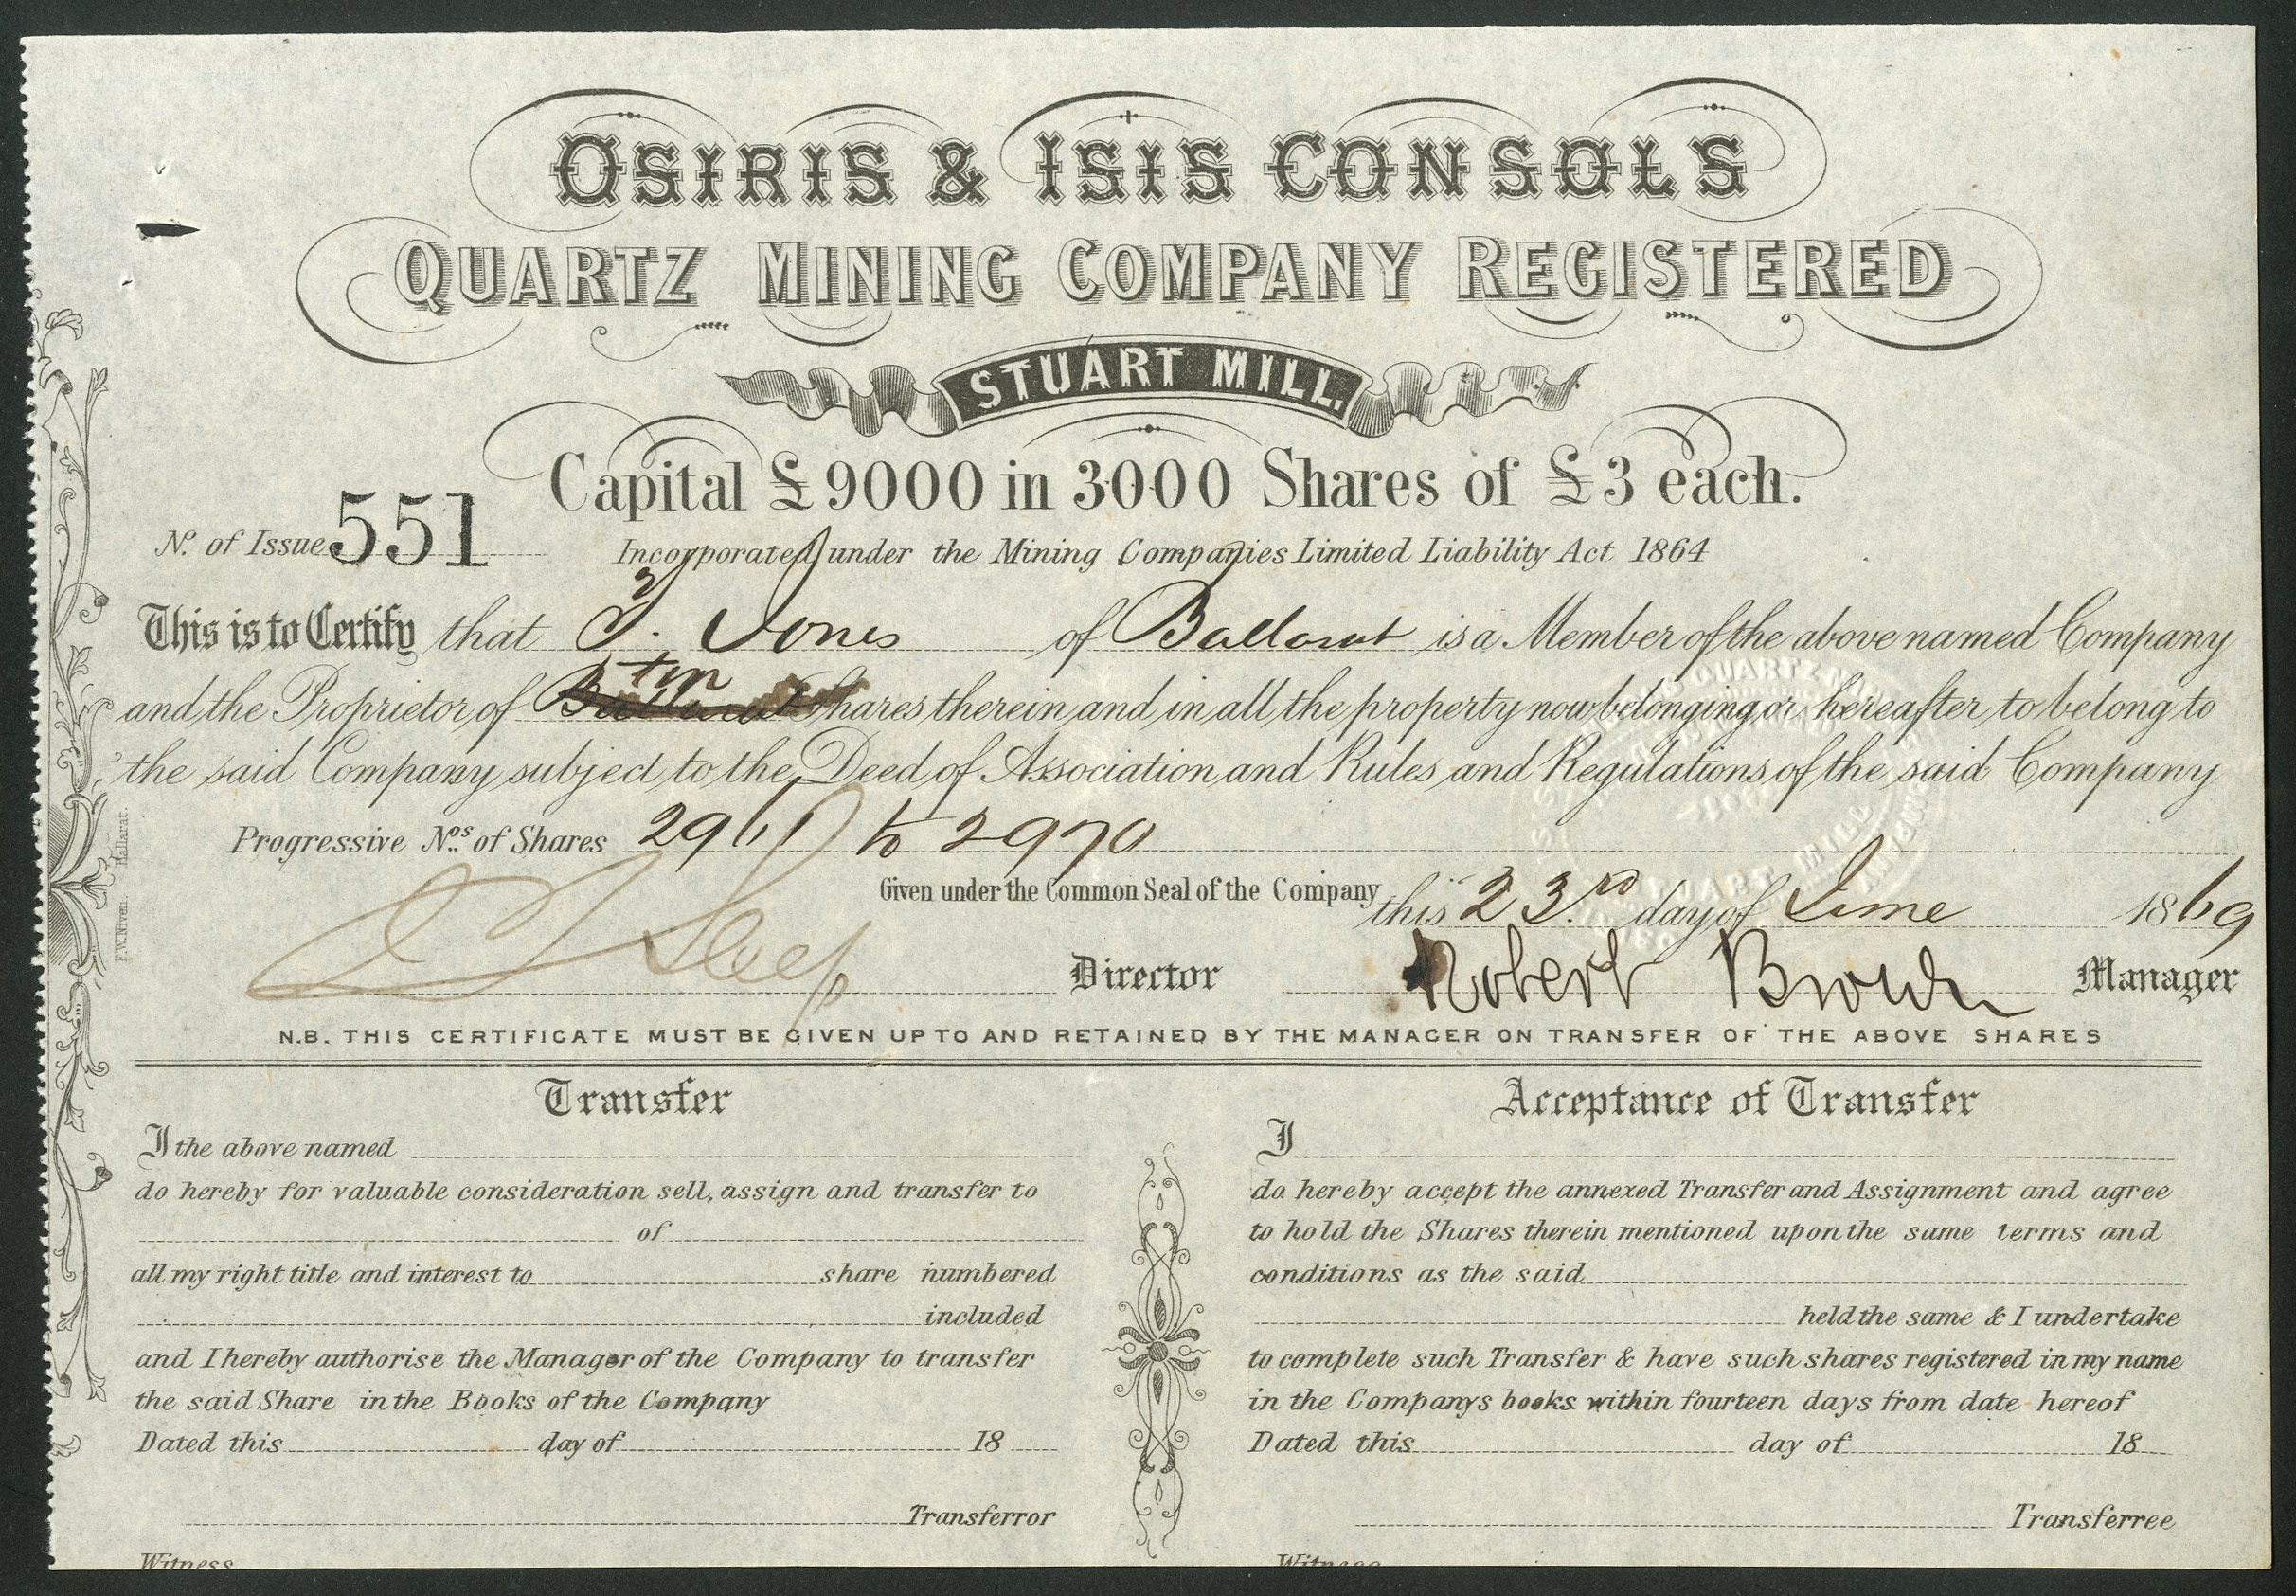 OSIRIS & ISIS CONSOLS
QUARTZ MINING COMPANY REGISTERED
STUART MILL.
Capital £9000 in 3000 Shares of £3 each.
No. of Issue 551
Incorporated under the Mining Companies Limited Liability Act 1864
This is to Certify that J. Jones of Ballarat is a Member of the above named Company
ten
and the Proprietor of Ballarat Shares therein and in all the property now belonging or hereafter to belong to
the said Company subject to the Deed of Association and Rules and Regulations of the said Company
Progressive Nos. of Shares 2961 to 2970
Given under the Common Seal of the Company this 23rd day of June 1869
Director Robert Brown Manager
N.B. THIS CERTIFICATE MUST BE GIVEN UP TO AND RETAINED BY THE MANAGER ON TRANSFER OF THE ABOVE SHARES
F.W. Niven. Ballarat.
Transfer
I the above named
do hereby for valuable consideration sell, assign and transfer to
of
all my right title and interest to share numbered
included
and I hereby authorise the Manager of the Company to transfer
the said Share in the Books of the Company
Dated this day of 18
Transferror
Witness
Acceptance of Transfer
I
do hereby accept the annexed Transfer and Assignment and agree
to hold the Shares therein mentioned upon the same terms and
conditions as the said
held the same & I undertake
to complete such Transfer & have such shares registered in my name
in the Companys books within fourteen days from date hereof
Dated this day of 18
Transferree
Witness